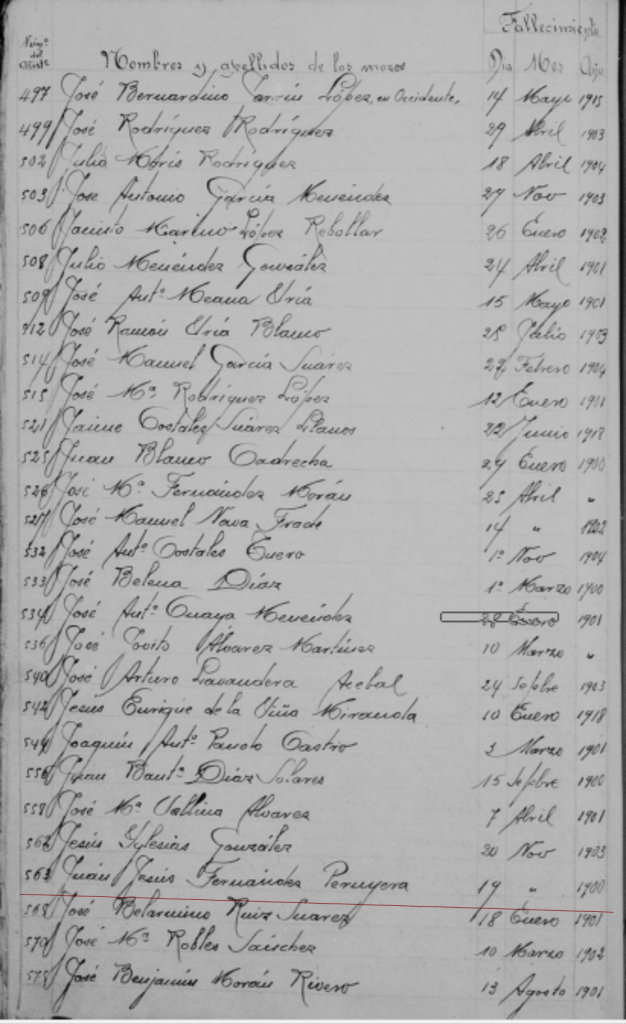 Fallecimiento
Núm.º del Aliste
Nombres y apellidos de los mozos Dia Mes Año
497 José Bernardino López, en Occidente, 14 Mayo 1915
499 José Rodríguez Rodríguez 29 Abril 1903
502 Julio Moris Rodriguez 18 Abril 1904
503 Jose Antonio García Menéndez 27 Nov 1903
506 Jacinto Marino López Rebollar 26 Enero 1902
508 Julio Menéndez González 24 Abril 1901
509 José Antº Meana Uría 15 Mayo 1901
512 José Ramón Uría Blanco 25 Julio 1903
514 José Manuel García Suárez 27 Febrero 1904
515 José Mª Rodríguez López 12 Enero 1901
521 Jaime Costales Suárez Llanos 22 Junio 1918
525 Juan Blanco Cadrecha 27 Enero 1900
526 José Mª Fernández Morán 25 Abril "
527 José Manuel Nava Frade 14 " 1902
532 José Antº Costales Cuero 1º Nov 1904
533 José Belena Díaz 1º Marzo 1900
534 José Antº Cuaya Menéndez 28 Enero 1901
536 José Alvarez Martínez 10 Marzo "
540 José Arturo Lavandera Acebal 24 Sepbre 1903
542 Jesús Enrique de la Viña Miranda 10 Enero 1918
549 Joaquín Antº Castro 3 Marzo 1901
556 Juan Bautª Díaz Solares 15 Sepbre 1900
558 José Mª Vallina Alvarez 7 Abril 1901
562 Jesús Yglesias González 20 Nov 1903
563 Juán Jesús Fernández Peruyera 19 " 1900
568 José Belarmino Ruiz Suarez 18 Enero 1901
570 José Mª Robles Sánchez 10 Marzo 1902
575 José Benjamín Morán Rivero 13 Agosto 1901